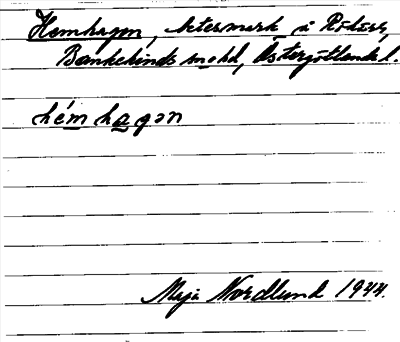 Hemhagen, betesmark å Rödses,
Bankekinds snhd, Östergötlands l.
hémhagən
Maja Nordlund 1944.